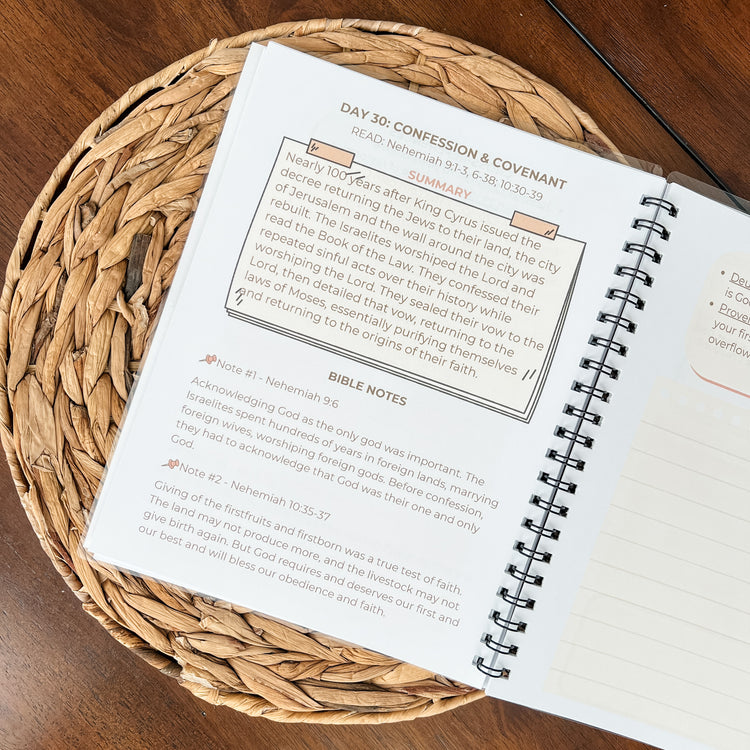 DAY 30: CONFESSION & COVENANT
READ: Nehemiah 9:1-3, 6-38; 10:30-39
SUMMARY
Nearly 100 years after King Cyrus issued the
decree returning the Jews to their land, the city
of Jerusalem and the wall around the city was
rebuilt. The Israelites worshiped the Lord and
read the Book of the Law. They confessed their
repeated sinful acts over their history while
worshiping the Lord. They sealed their vow to the
Lord, then detailed that vow, returning to the
laws of Moses, essentially purifying themselves
and returning to the origins of their faith.
BIBLE NOTES
Note #1 - Nehemiah 9:6
Acknowledging God as the only god was important. The
Israelites spent hundreds of years in foreign lands, marrying
foreign wives, worshiping foreign gods. Before confession,
they had to acknowledge that God was their one and only
God.
Note #2 - Nehemiah 10:35-37
Giving of the firstfruits and firstborn was a true test of faith.
The land may not produce more, and the livestock may not
give birth again. But God requires and deserves our first and
our best and will bless our obedience and faith.
is
your
overflow